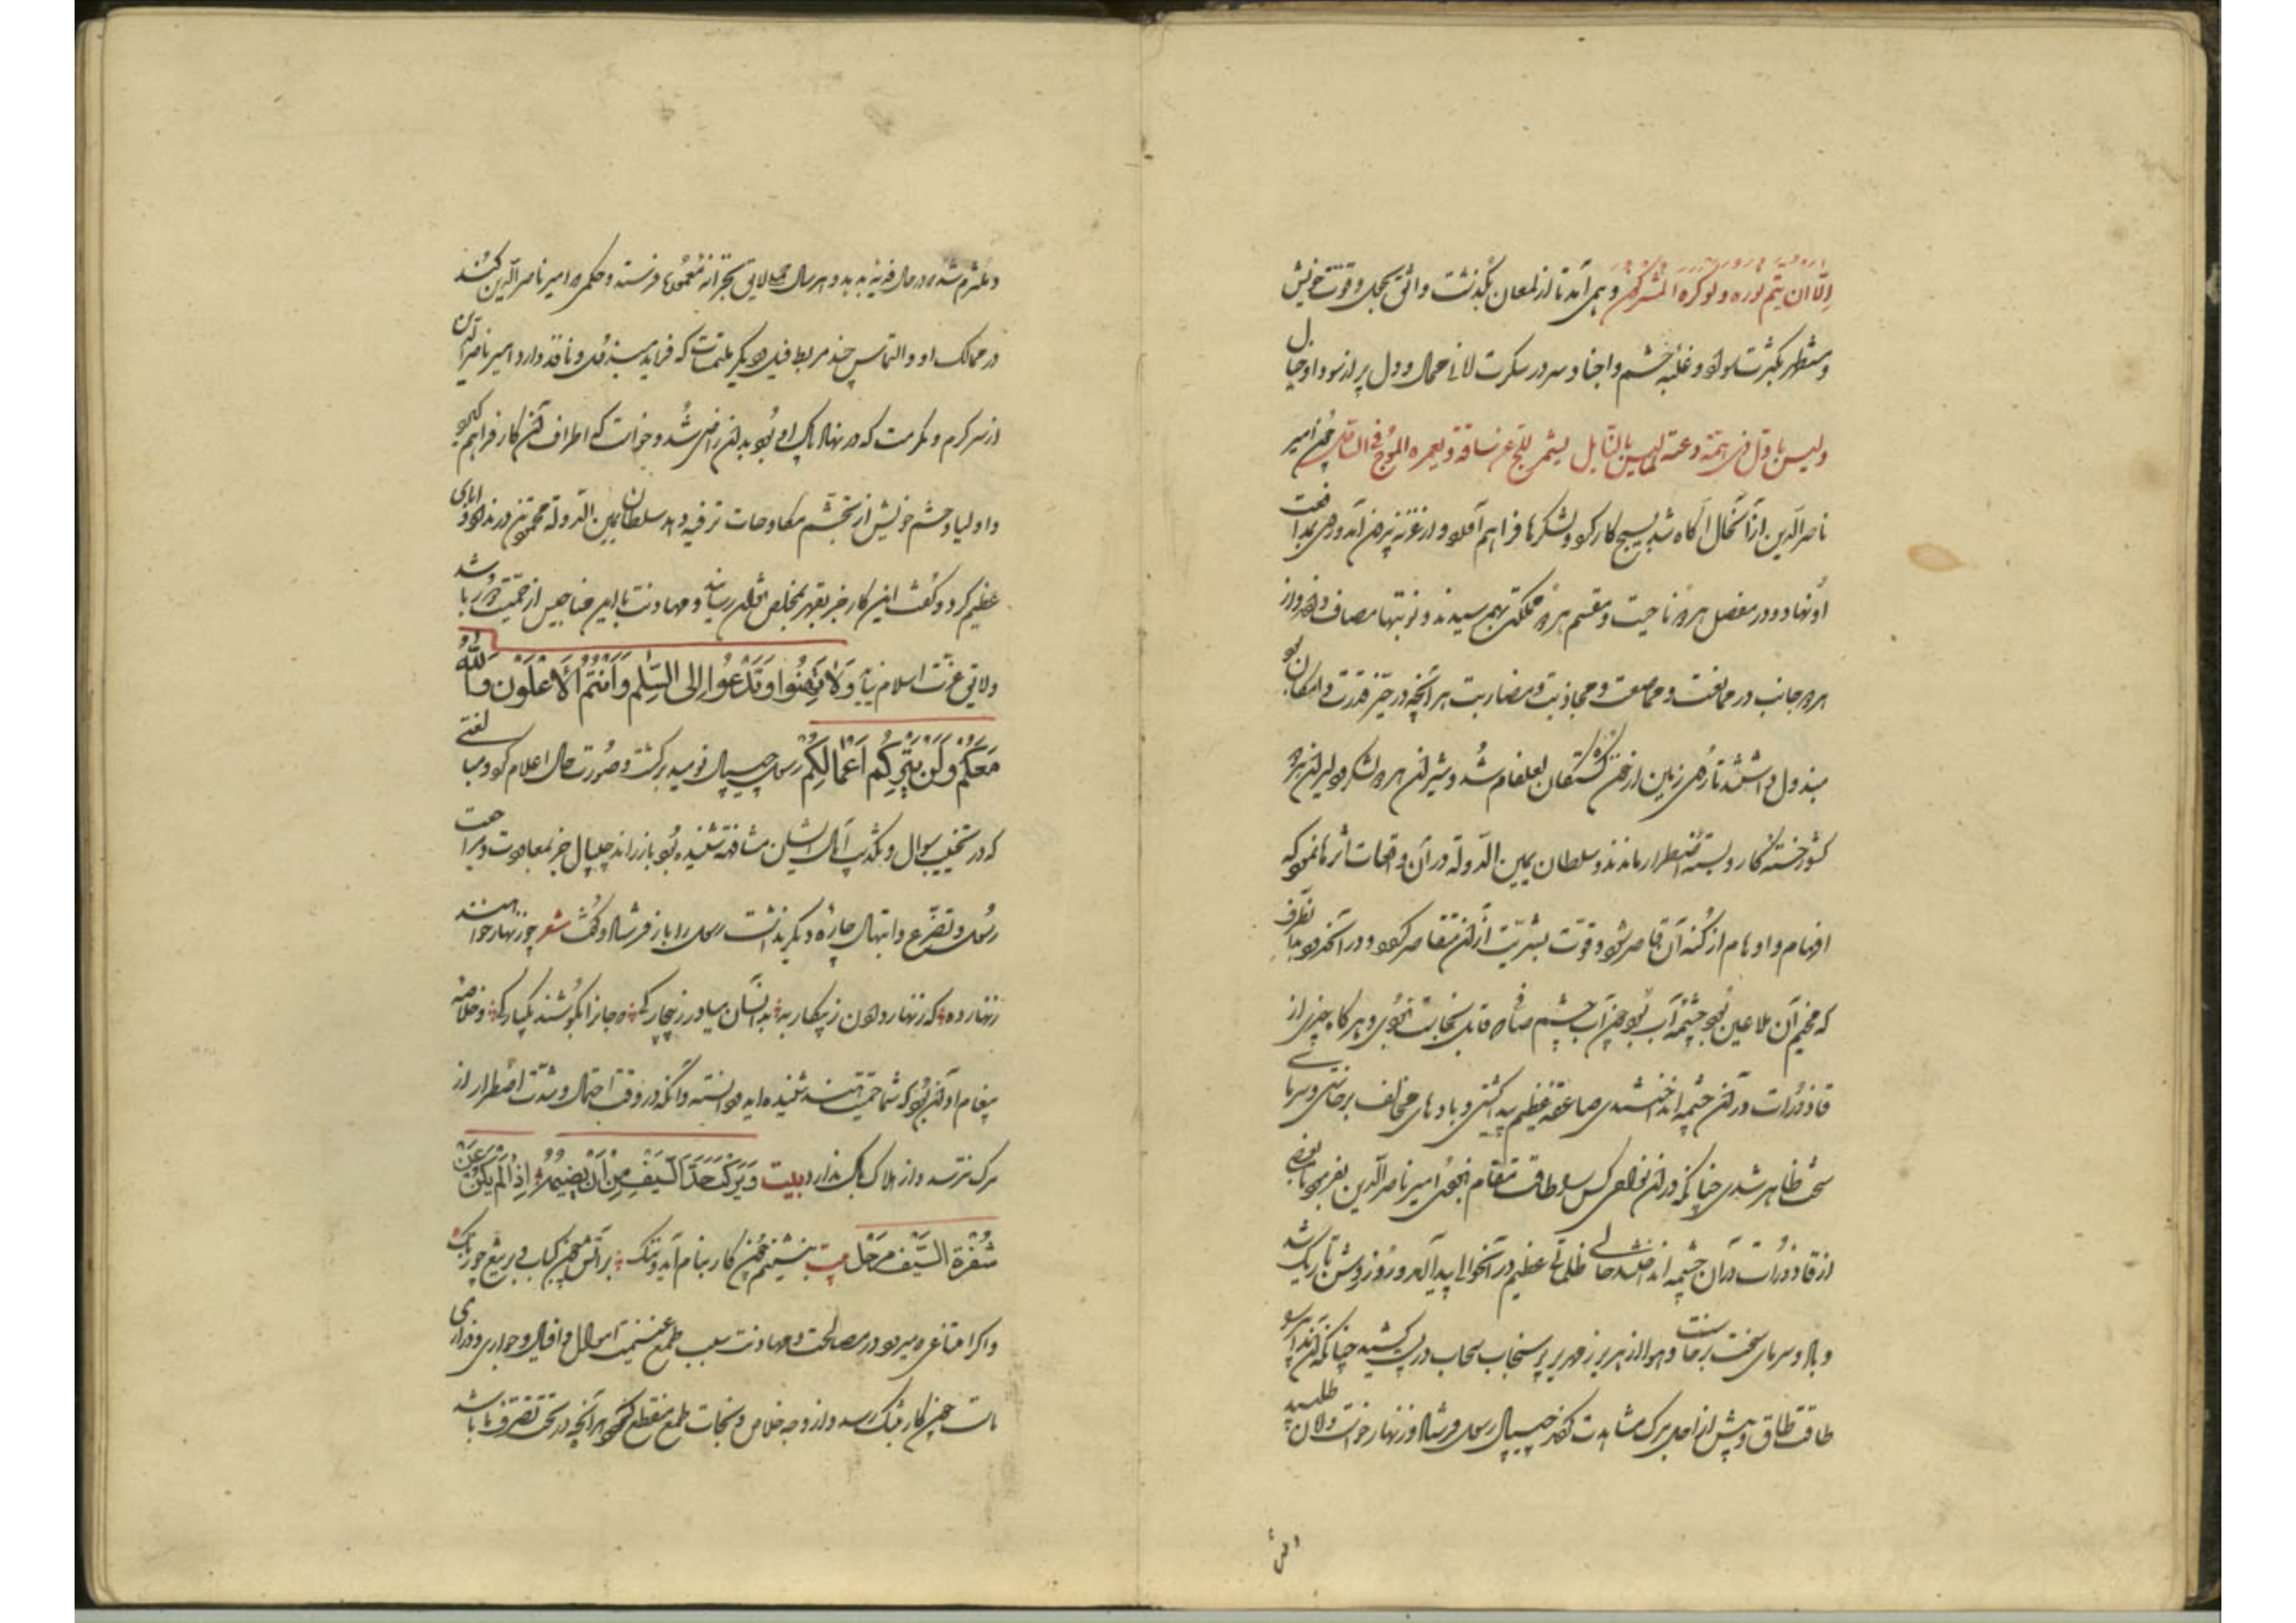 الا ان یتم نوره ولو کره المشرکون و همی آمد تا از لمغان بگذشت واثق بحول و قوت خویش
و مستظهر بکثرت سواد و غلبه حشم و اجناد و سر در سکرت لاف محال و دل پر از سودا و خیال
ولیس باول ذی همة دعته لما لیس بالنایل یشمر للج عن ساقه و یغمره الموج فی الساحل چون امیر
ناصر الدین از آن حال آگاه شد بسیج کار کرد و لشکرها فراهم آورد و از غزنه بیرون آمد و روی بمدافعت
او نهاد و در مفصل هر دو ناحیت و مقسم هر دو مملکت بهم رسیدند و نوبتها مصاف دادند و از
هر دو جانب در ممانعت و مماصعت و مجاذبت و مضاربت هر آنچه در حیز قدرت و امکان بود
مبذول داشتند تا روی زمین از خون کشتگان لعل فام شد و شیران هر دو لشکر و دلیران هر دو
کشور خسته کار و بسته اضطرار ماندند و سلطان یمین الدوله در آن واقعات اثرها نمود که
افهام و اوهام از کنه آن قاصر شود و قوت بشریت از آن متقاصر گردد و در آن حدود بدان طرف
که مخیم آن ملاعین بود چشمه آب بود چون آب چشم صافی قابل نجاست نبودی و هر گاه چیزی از
قاذورات در آن چشمه انداختندی صاعقه عظیم پیدا گشتی و بادهای مخالف برخاستی و سرمای
سخت ظاهر شدی چنانکه در آن نواحی کس را طاقت مقام نبودی امیر ناصر الدین بفرمود تا بعضی
از قاذورات در آن چشمه انداختند حالی ظلماتی عظیم در آن حوالی پیدا آمد و روز روشن تاریک شد
و باد و سرمای سخت برخاست و هوا از زمهریر پر سنجاب سحاب در سر کشید چنانکه آن مدابیر را
طاقت طاق و پیش از اجل مرگ مشاهدت کردند جیپال رسول فرستاد و زنهار خواست و امان طلبید
و ملتزم شد که در حال فدیه بدهد و هر سال حمالاتی بخزانه معمور میفرستد و حکم امیر ناصر الدین کنند
در ممالک او و التماس چند مربط فیل و دیگر ملتمسات که فرماید مبذول و نافذ دارد امیر ناصر الدین
از سر کرم و مکرمت که در نهاد پاک او بود بدان راضی شد و خواست که اطراف آن کار فراهم گیرد
و اولیا و حشم خویش از تجشم مکاوحات ترفیه دهد سلطان یمین الدوله محمود تن در نداد و ابای
عظیم کرد و گفت این کار جز بقهر بمخلص نتوان رسانید و مهادنت با این مناحیس از حمیت دور باشد
و لایق عزت اسلام نیاید وَلا تَهِنُوا وَتَدْعُوا إِلَى السِّلْمِ وَأَنْتُمُ الْأَعْلَوْنَ وَاللَّهُ
مَعَكُمْ وَلَنْ يَتِرَكُمْ أَعْمَالَكُمْ رسول جیپال نومید برگشت و صورت حال اعلام کرد و مبالغتی
که در تخییب سوال و تکذیب آمال ایشان مشافهه شنیده بود باز راند جیپال جز بمعاودت و مراجعت
رسول و تضرع و ابتهال چاره دیگر ندانست رسول را باز فرستاد و گفت شعر چو زنهار خواهند
زنهار ده که زنهار دادن ز پیکار به بدانسان میاور ز بیچارگی که جانرا بکوشند یکبارگی و خلاصه
پیغام او آن بود که شما حمیت هند شنیده اید و دانسته و آنکه در وقت احتمال و شدت اضطرار از
مرگ نترسد و از هلاک باک ندارد بیت وَيَرْكَبُ حَدَّ السَّيْفِ مِنْ أَنْ تَضِيمَهُ إِذَا لَمْ يَكُنْ عَنْ
شَفْرَةِ السَّيْفِ مَزْحَلُ بیت بنشینم چون کار بنام آید و ننگ بر آتش چون کباب و بر تیغ چو زنگ
و اگر امتناعی میرود در مصالحت و مهادنت بسبب طمع غنیمت اموال و افیال و جواری و ذراری
ماست چون کار بتنگ رسد و از وجه خلاص و نجات طمع منقطع گردد هر آنچه در تحت تصرف ما باشد